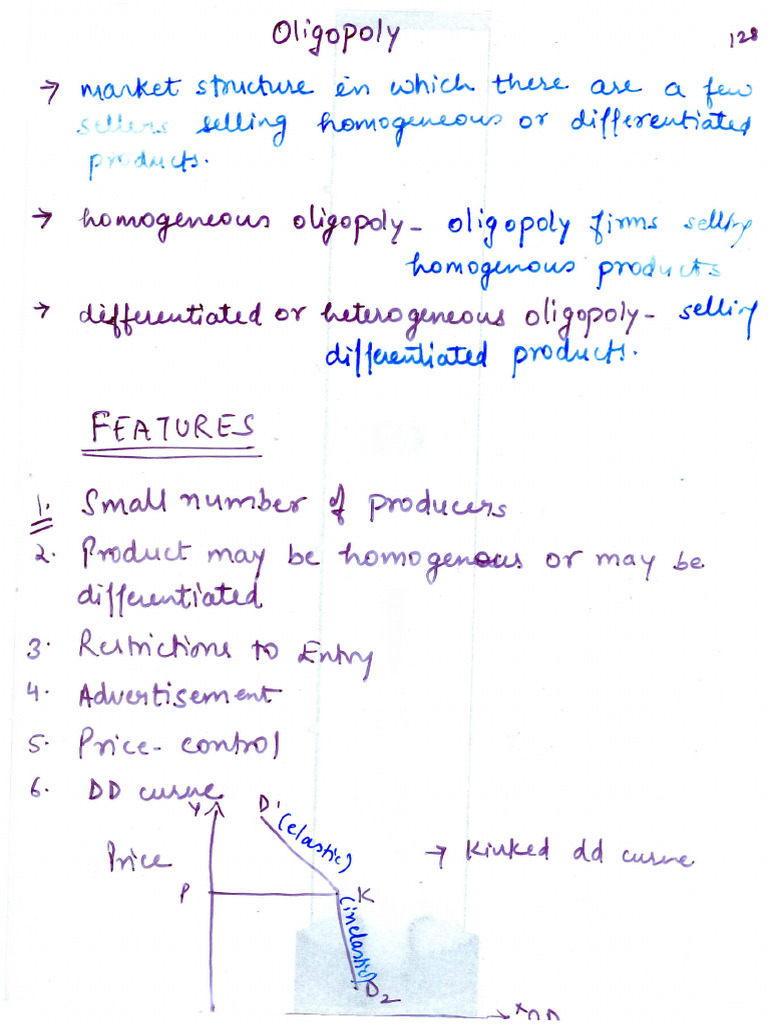 Oligopoly
128
→ market structure in which there are a few
sellers selling homogeneous or differentiated
products.
→ homogeneous oligopoly - oligopoly firms selling
homogenous products
→ differentiated or heterogeneous oligopoly - selling
differentiated products.
FEATURES
1. Small number of producers
2. Product may be homogenous or may be
differentiated
3. Restrictions to Entry
4. Advertisement
5. Price-control
6. DD curve
Y D' (elastic)
Price → Kinked dd curve
P K
(inelastic)
D2
X DD